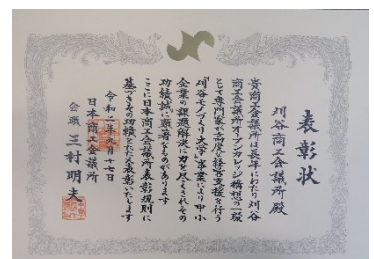 表彰状
刈谷商工会議所殿
貴商工会議所は長年にわたり刈谷
商工会議所オープンカレッジ構想の一環
として専門家が高度な経営支援を行う
「刈谷モノづくり大学」事業により中小
企業の課題解決に力を尽くされその
功績誠に顕著なものがあります
ここに日本商工会議所表彰規則に
基づきその功績をたたえ表彰いたします
令和二年九月十七日
日本商工会議所
会頭 三村明夫